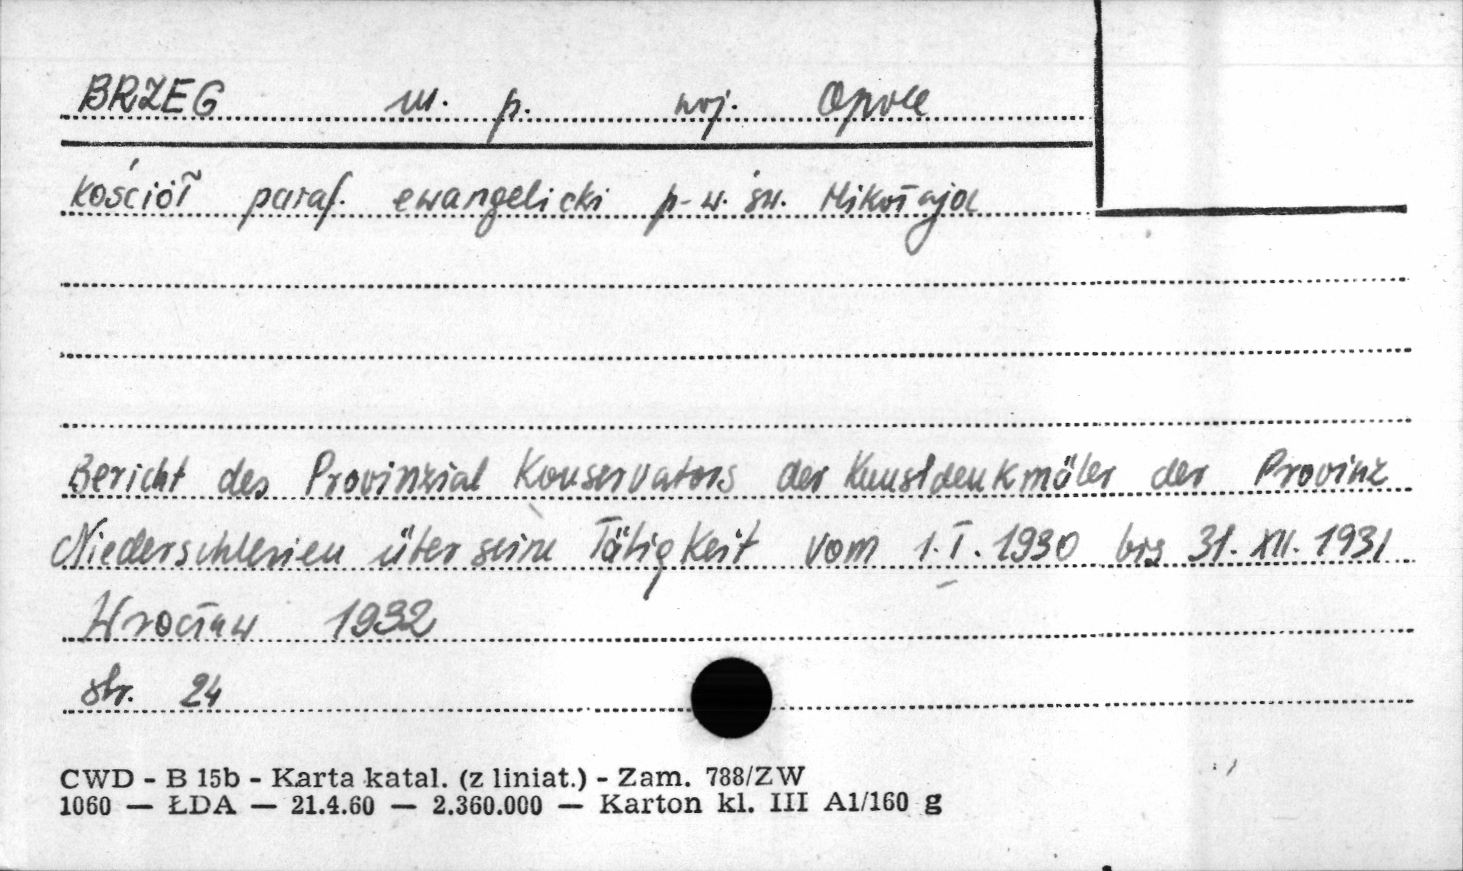 BRZEG m. p. woj. Opole
kościół paraf. ewangelicki p-w. św. Mikołaja
Bericht des Provinzial Konservators der Kunstdenkmäler der Provinz
Niederschlesien über seine Tätigkeit vom 1.I.1930 bis 31.XII.1931
Wrocław 1932
str. 24
CWD - B 15b - Karta katal. (z liniat.) - Zam. 788/ZW
1060 — ŁDA — 21.4.60 — 2.360.000 — Karton kl. III A1/160 g